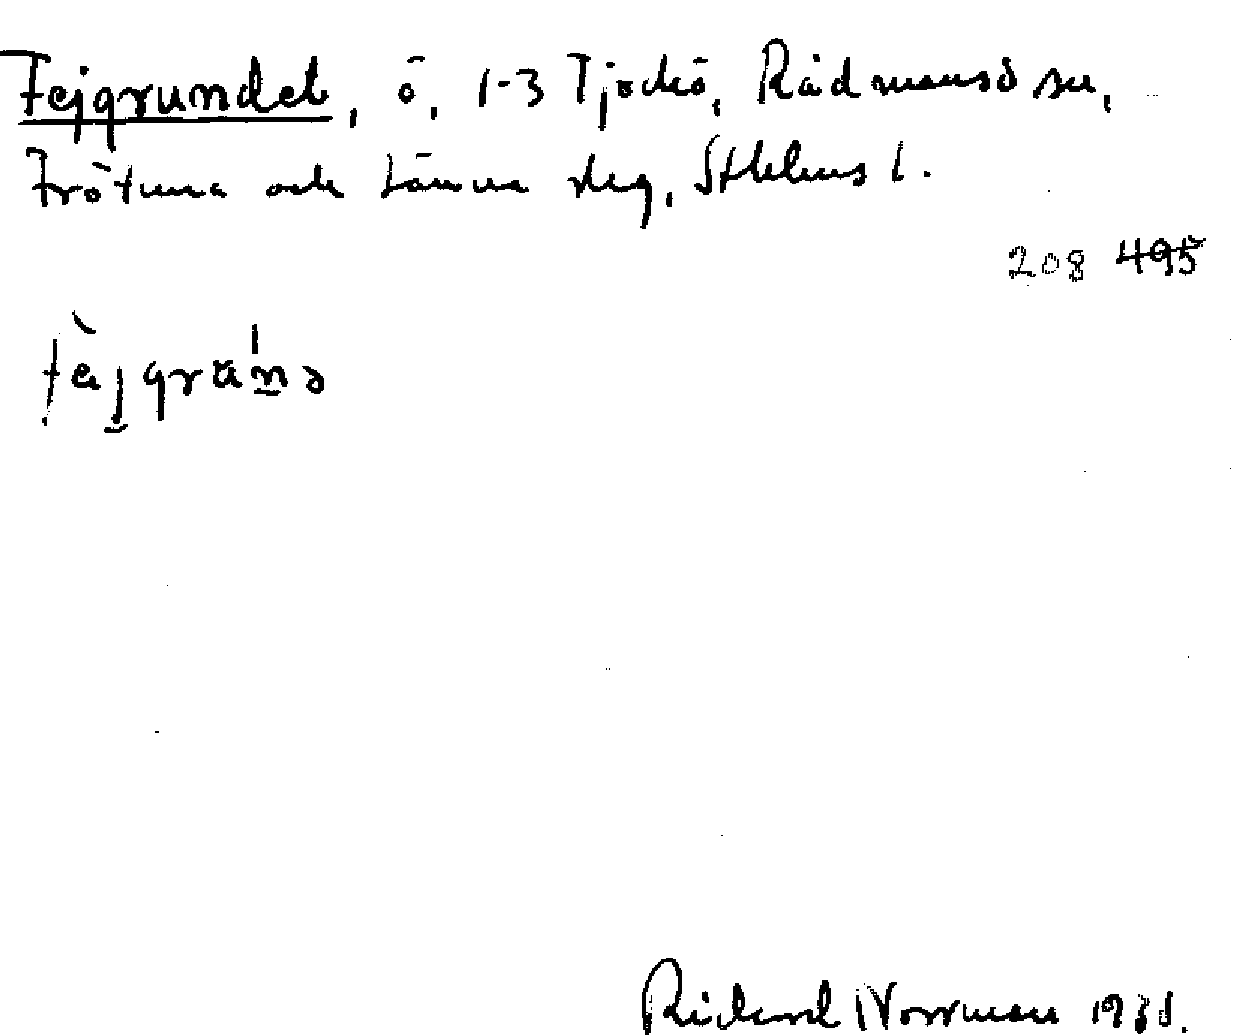 Fejgrundet, ö, 1-3 Tjockö, Rådmansö sn,
Frötuna och Länna skg, Sthlms l.
208 495
Rickard Norrman 1931.